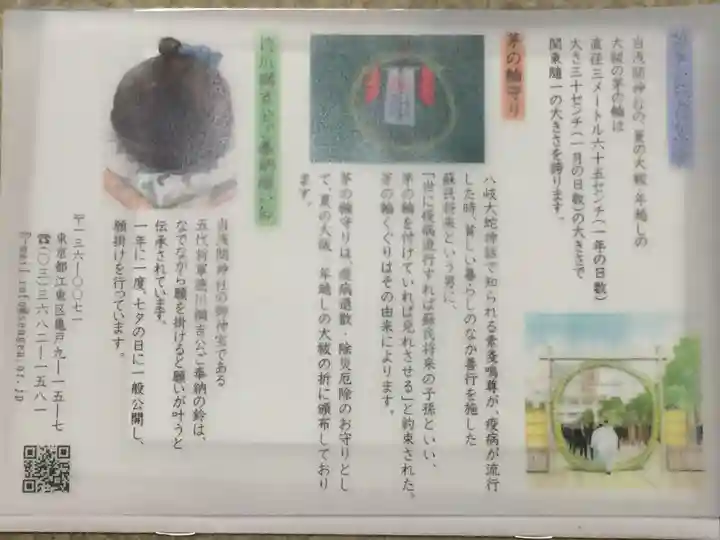 当浅間神社の、夏の大祓・年越しの
大祓の茅の輪は
直径三メートル六十五センチ(一年の日数)
大き三十センチ(一月の日数)の大きさで
関東随一の大きさを誇ります。
茅の輪守り
八岐大蛇神話で知られる素戔嗚尊が、疫病が流行
した時、貧しい暮らしのなか善行を施した
蘇民将来という男に、
「世に疫病流行すれば蘇民将来の子孫といい、
茅の輪を付けていれば免れさせる」と約束された。
茅の輪くぐりはその由来によります。
茅の輪守りは、疫病退散・除災厄除のお守りとし
て、夏の大祓、年越しの大祓の折に頒布しており
ます。
当浅間神社の御神宝である
五代将軍徳川綱吉公ご奉納の鈴は、
なでながら願を掛けると願いが叶うと
伝承されています。
一年に一度、七夕の日に一般公開し、
願掛けを行っています。
〒一三六ー〇〇七一
東京都江東区亀戸九ー一五ー七
☎(〇三)三六八二ー一五八一